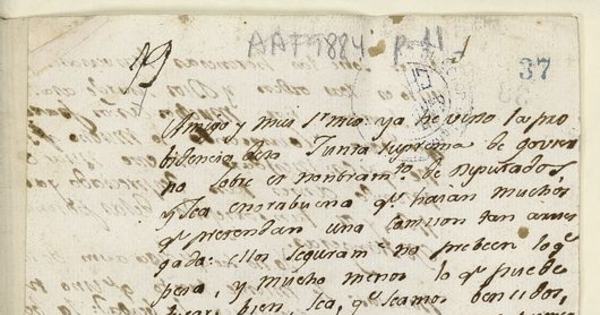 AAF9884 p. 11
37
Amigo y mui Sr mio: ya he visto la pro
bidencia dela Junta suprema de govier
no sobre el nonbramto. de Diputados,
y sea enorabuena qe. haian muchos
qe. pretendan una comision tan arries
gada: ellos seguramte. no prebeen lo qe.
pesa, y mucho menos lo qe. puede
bien, sea, qe. seamos bencidos,